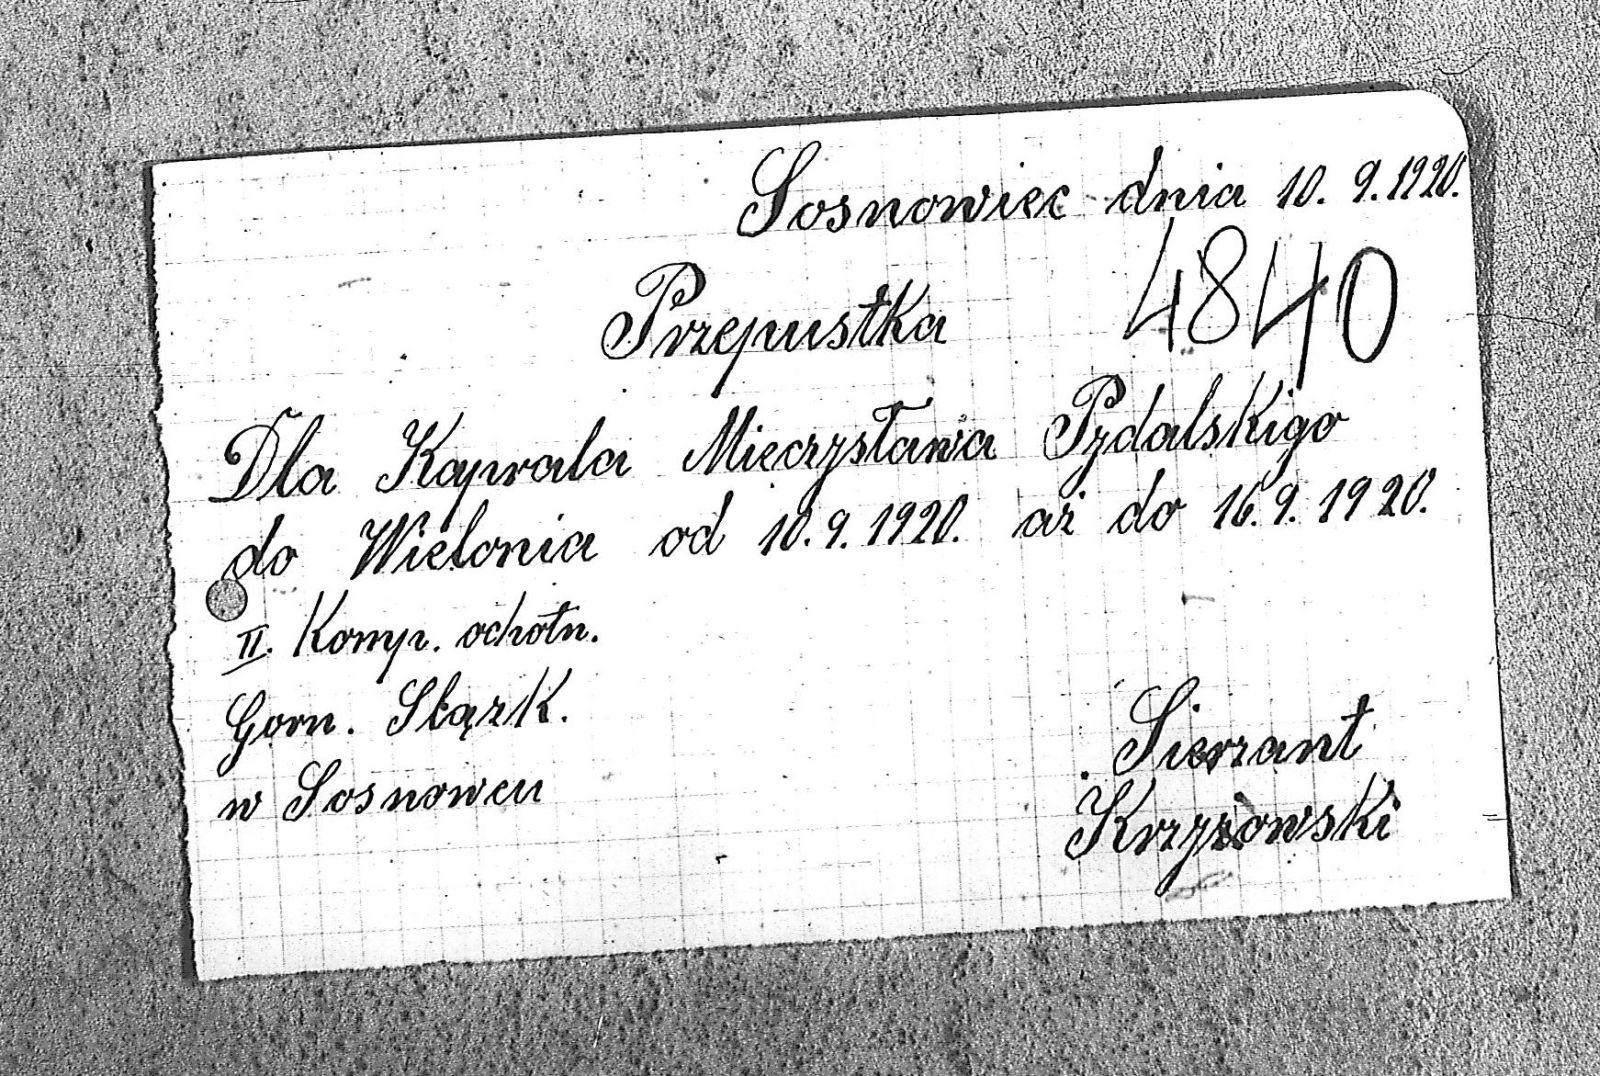 Sosnowiec dnia 10. 9. 1920.
Przepustka
4840
Dla Kaprala Mieczysława Pydalskigo
do Wielonia od 10. 9. 1920. aż do 16. 9. 1920.
II. Komp. ochotn.
Gorn. Slązk.
w Sosnowcu
Sierzant
Krzyżowski